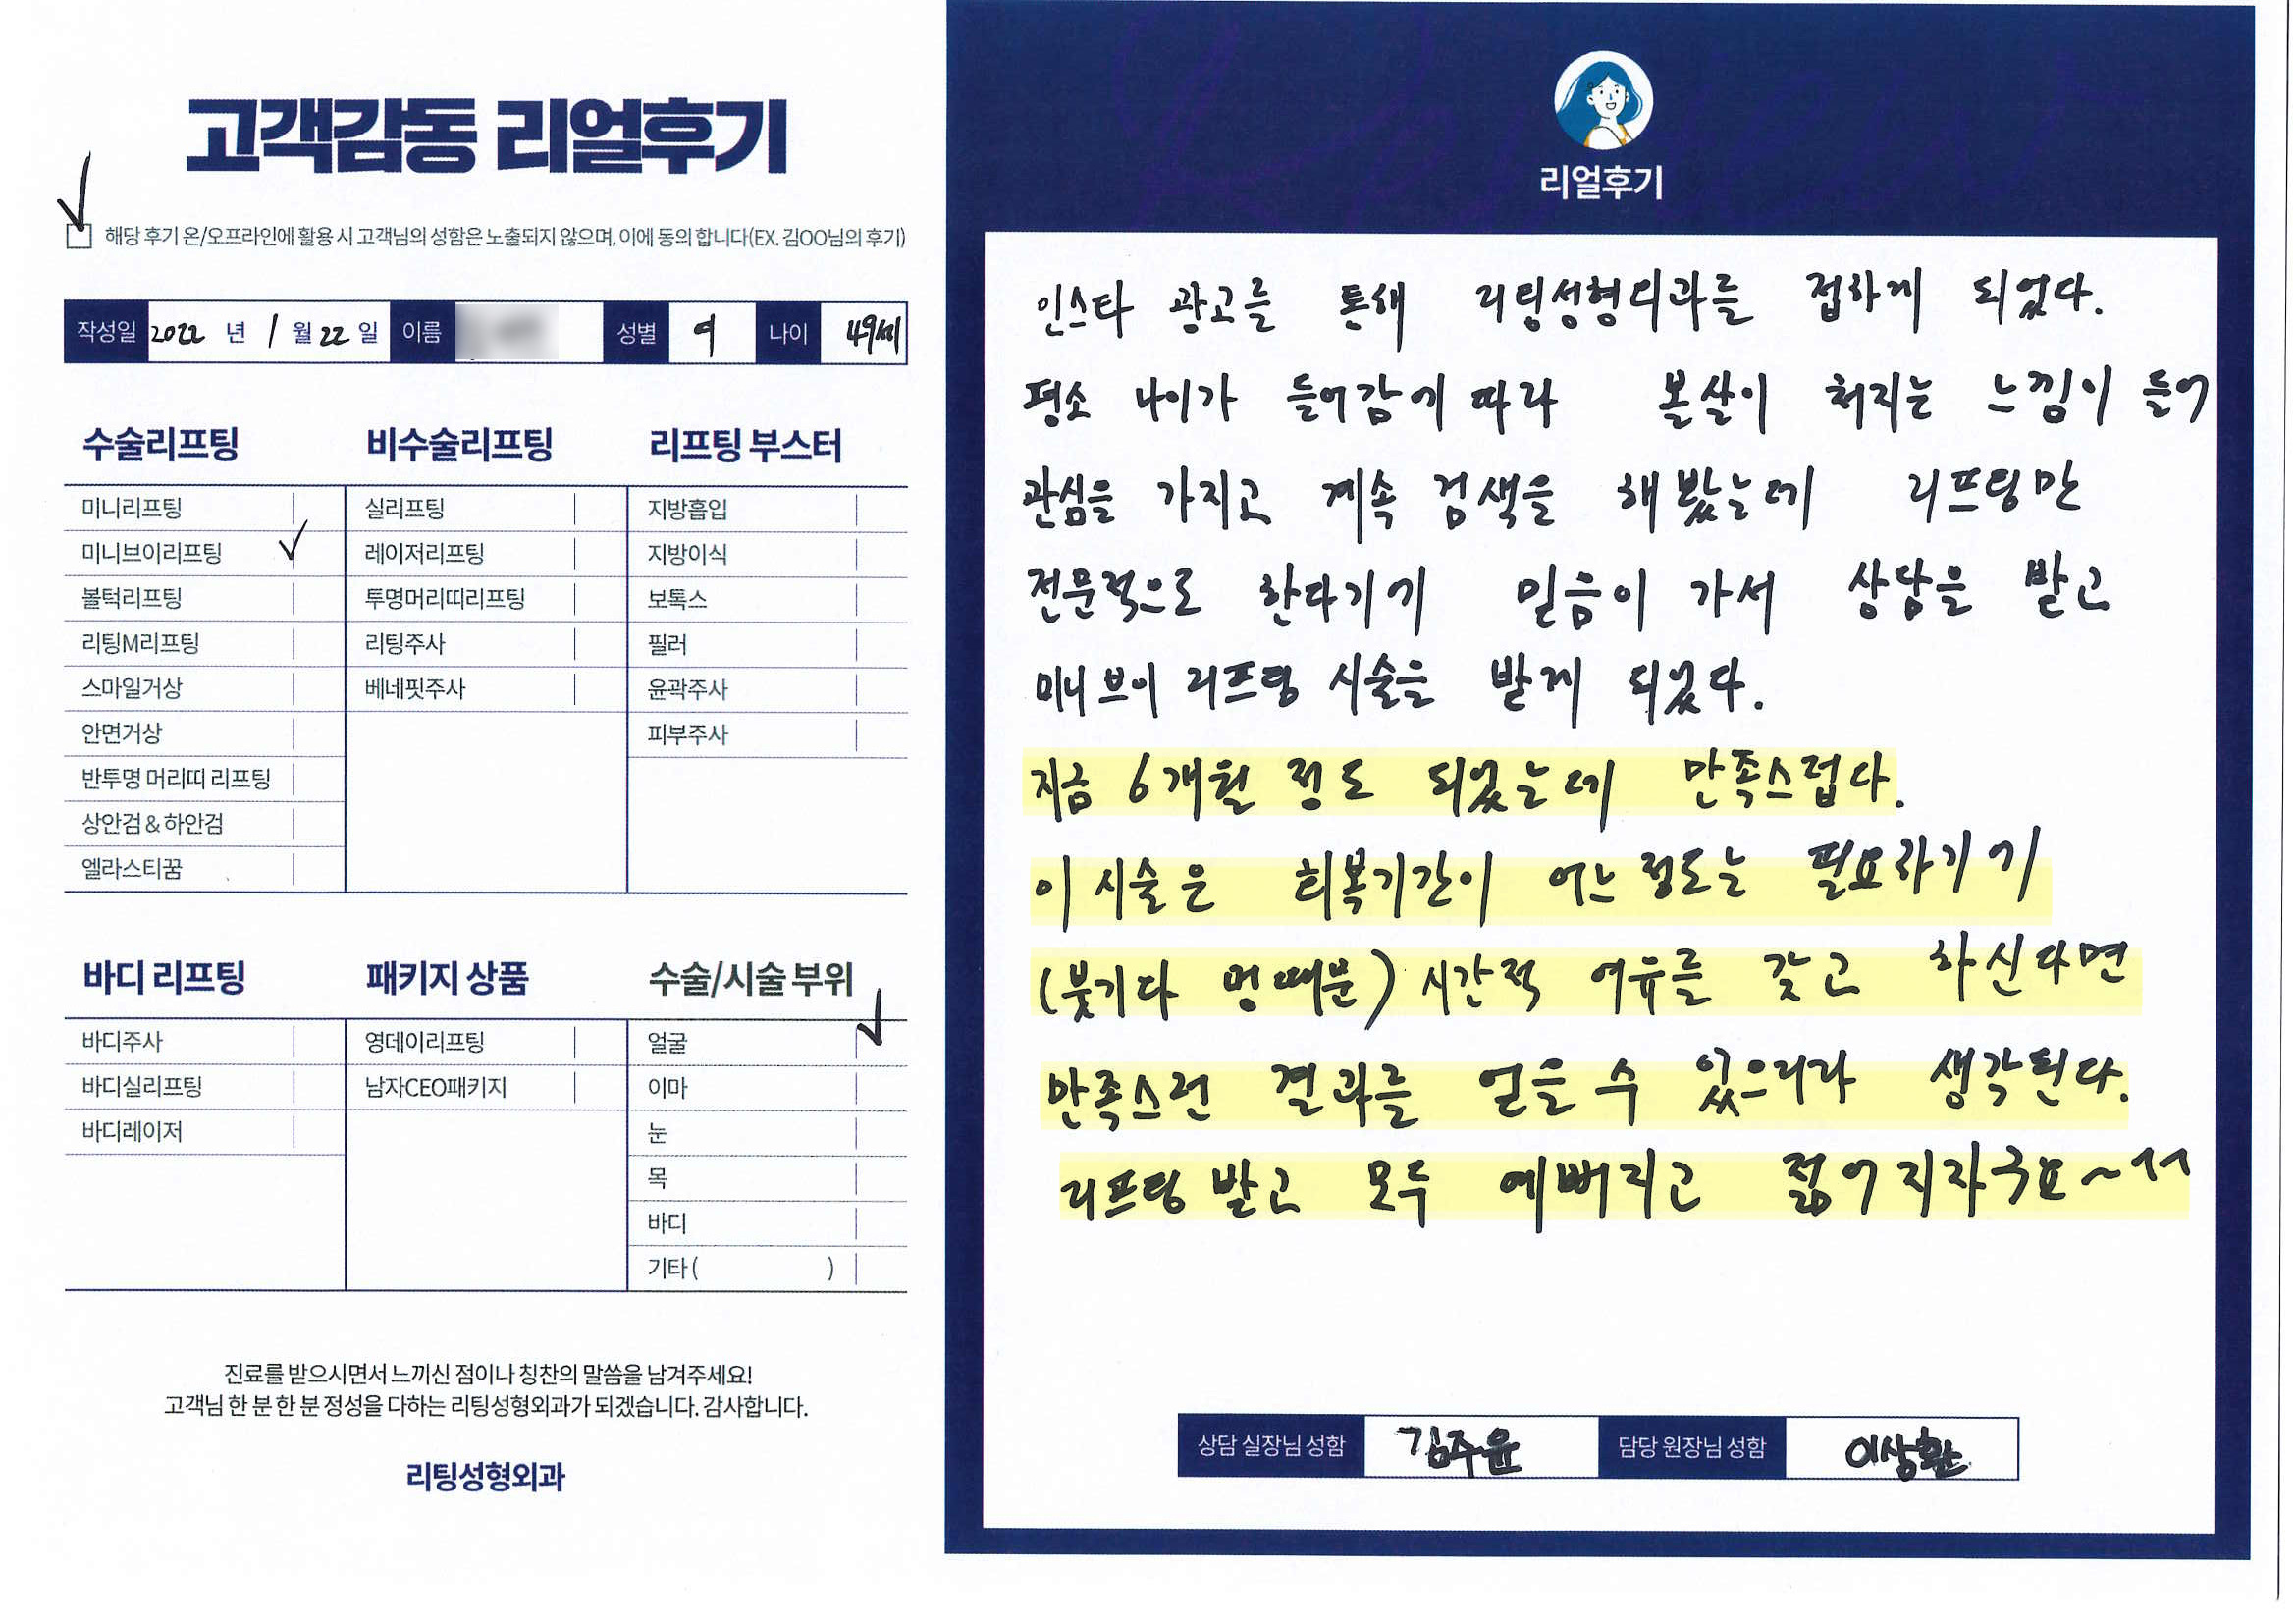 고객감동 리얼후기
해당 후기 온/오프라인에 활용 시 고객님의 성함은 노출되지 않으며, 이에 동의 합니다(EX. 김OO님의 후기)
작성일 2022 년 1 월 22 일 이름 성별 여 나이 49세
수술리프팅
미니리프팅
미니브이리프팅
볼턱리프팅
리팅M리프팅
스마일거상
안면거상
반투명 머리띠 리프팅
상안검 & 하안검
엘라스티꿈
비수술리프팅
실리프팅
레이저리프팅
투명머리띠리프팅
리팅주사
베네핏주사
리프팅 부스터
지방흡입
지방이식
보톡스
필러
윤곽주사
피부주사
바디 리프팅
바디주사
바디실리프팅
바디레이저
패키지 상품
영데이리프팅
남자CEO패키지
수술/시술 부위
얼굴
이마
눈
목
바디
기타 ( )
진료를 받으시면서 느끼신 점이나 칭찬의 말씀을 남겨주세요!
고객님 한 분 한 분 정성을 다하는 리팅성형외과가 되겠습니다. 감사합니다.
리팅성형외과
리얼후기
인스타 광고를 통해 리팅성형외과를 접하게 되었다.
평소 나이가 들어감에 따라 볼살이 처지는 느낌이 들어
관심을 가지고 계속 검색을 해봤는데 리프팅만
전문적으로 한다기에 믿음이 가서 상담을 받고
미니브이 리프팅 시술을 받게 되었다.
지금 6개월 정도 되었는데 만족스럽다.
이 시술은 회복기간이 어느정도는 필요하기에
(붓기다 멍때문) 시간적 여유를 갖고 하신다면
만족스런 결과를 얻을 수 있으리라 생각된다.
리프팅 받고 모두 예뻐지고 젊어지자구요~^^
상담 실장님 성함 김주윤 담당 원장님 성함 이상환